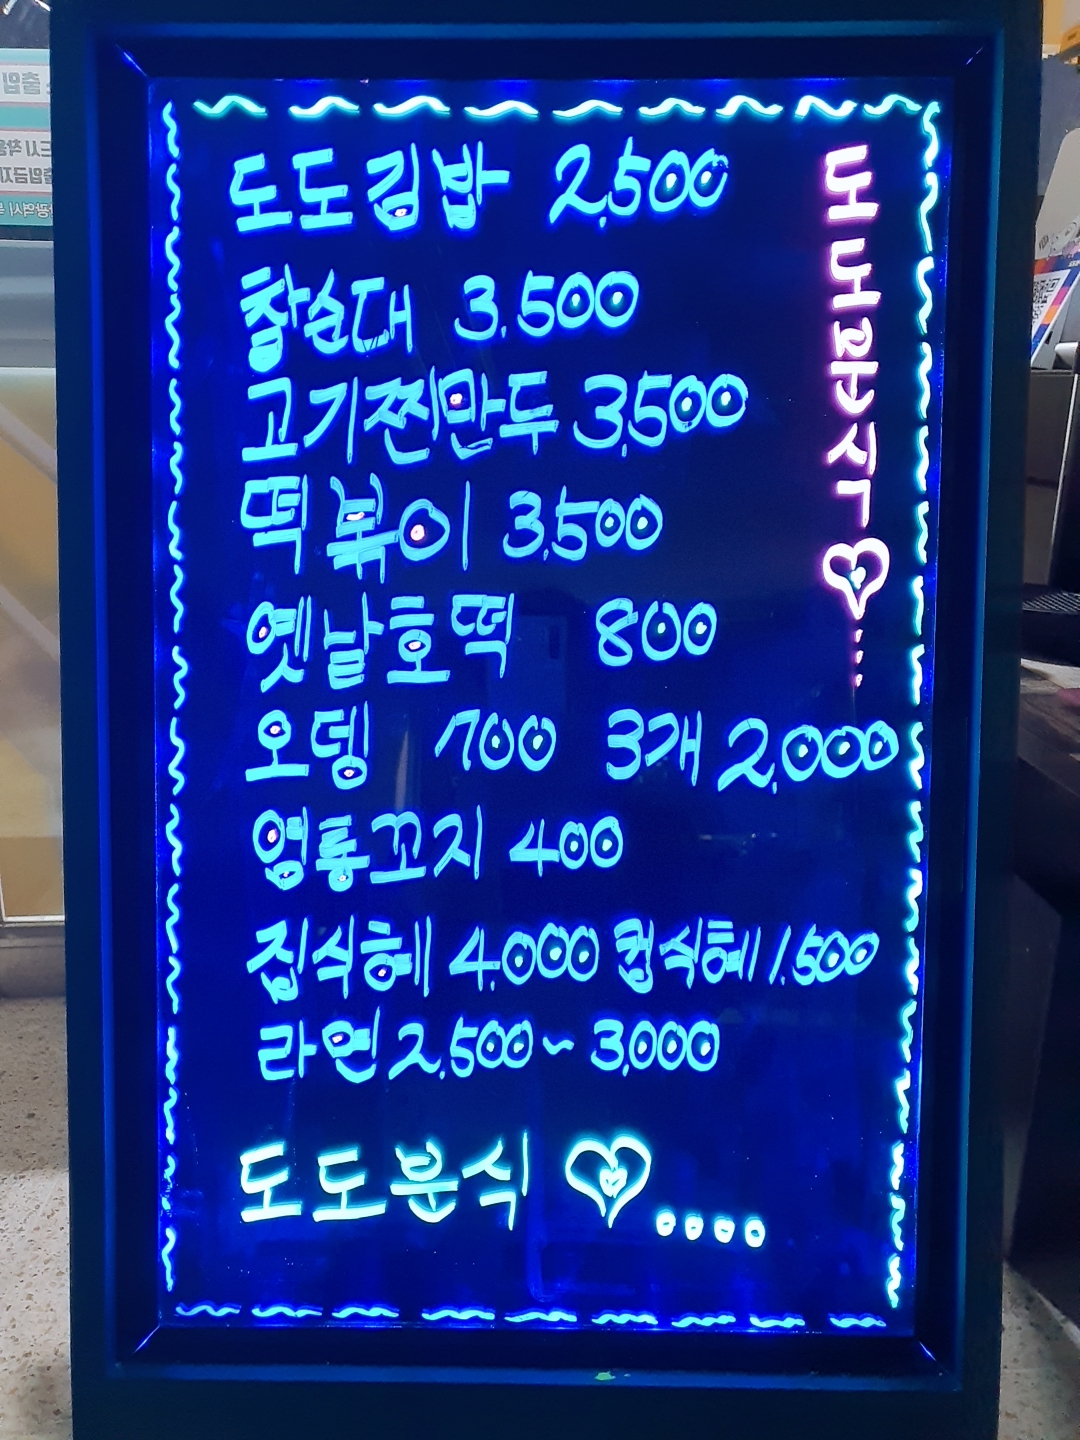 도도김밥 2,500
참순대 3,500
고기찐만두 3,500
떡볶이 3,500
옛날호떡 800
오뎅 700 3개 2,000
염통꼬지 400
집식혜 4,000 컵식혜 1,500
라면 2,500~3,000
도도분식
도도분식